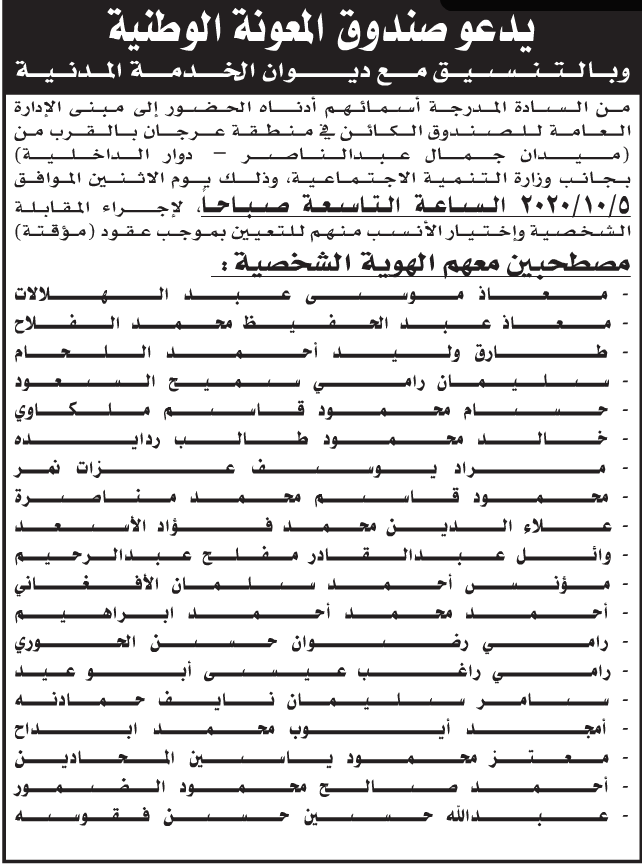 يدعو صندوق المعونة الوطنية
وبالتنسيق مع ديوان الخدمة المدنية
من السادة المدرجة أسمائهم أدناه الحضور إلى مبنى الإدارة
العامة للصندوق الكائن في منطقة عرجان بالقرب من
(ميدان جمال عبدالناصر – دوار الداخلية)
بجانب وزارة التنمية الاجتماعية، وذلك يوم الاثنين الموافق
٢٠٢٠/١٠/٥ الساعة التاسعة صباحاً، لإجراء المقابلة
الشخصية وإختيار الأنسب منهم للتعيين بموجب عقود (مؤقتة)
مصطحبين معهم الهوية الشخصية :
- معاذ موسى عبد الهلالات
- معاذ عبد الحفيظ محمد الفلاح
- طارق وليد أحمد اللحام
- سليمان رامي سميح السعود
- حسام محمود قاسم ملكاوي
- خالد محمود طالب ردايده
- مراد يوسف عزات نمر
- محمود قاسم محمد مناصرة
- علاء الدين محمد فؤاد الأسعد
- وائل عبدالقادر مفلح عبدالرحيم
- مؤنس أحمد سلمان الأفغاني
- أحمد محمد أحمد ابراهيم
- رامي رضوان حسن الحوري
- رامي راغب عيسى أبو عيد
- سامر سليمان نايف حمادنه
- أمجد أيوب محمد ابداح
- معتز محمود ياسين المحادين
- أحمد صالح محمود الضمور
- عبدالله حسين حسن فقوسه